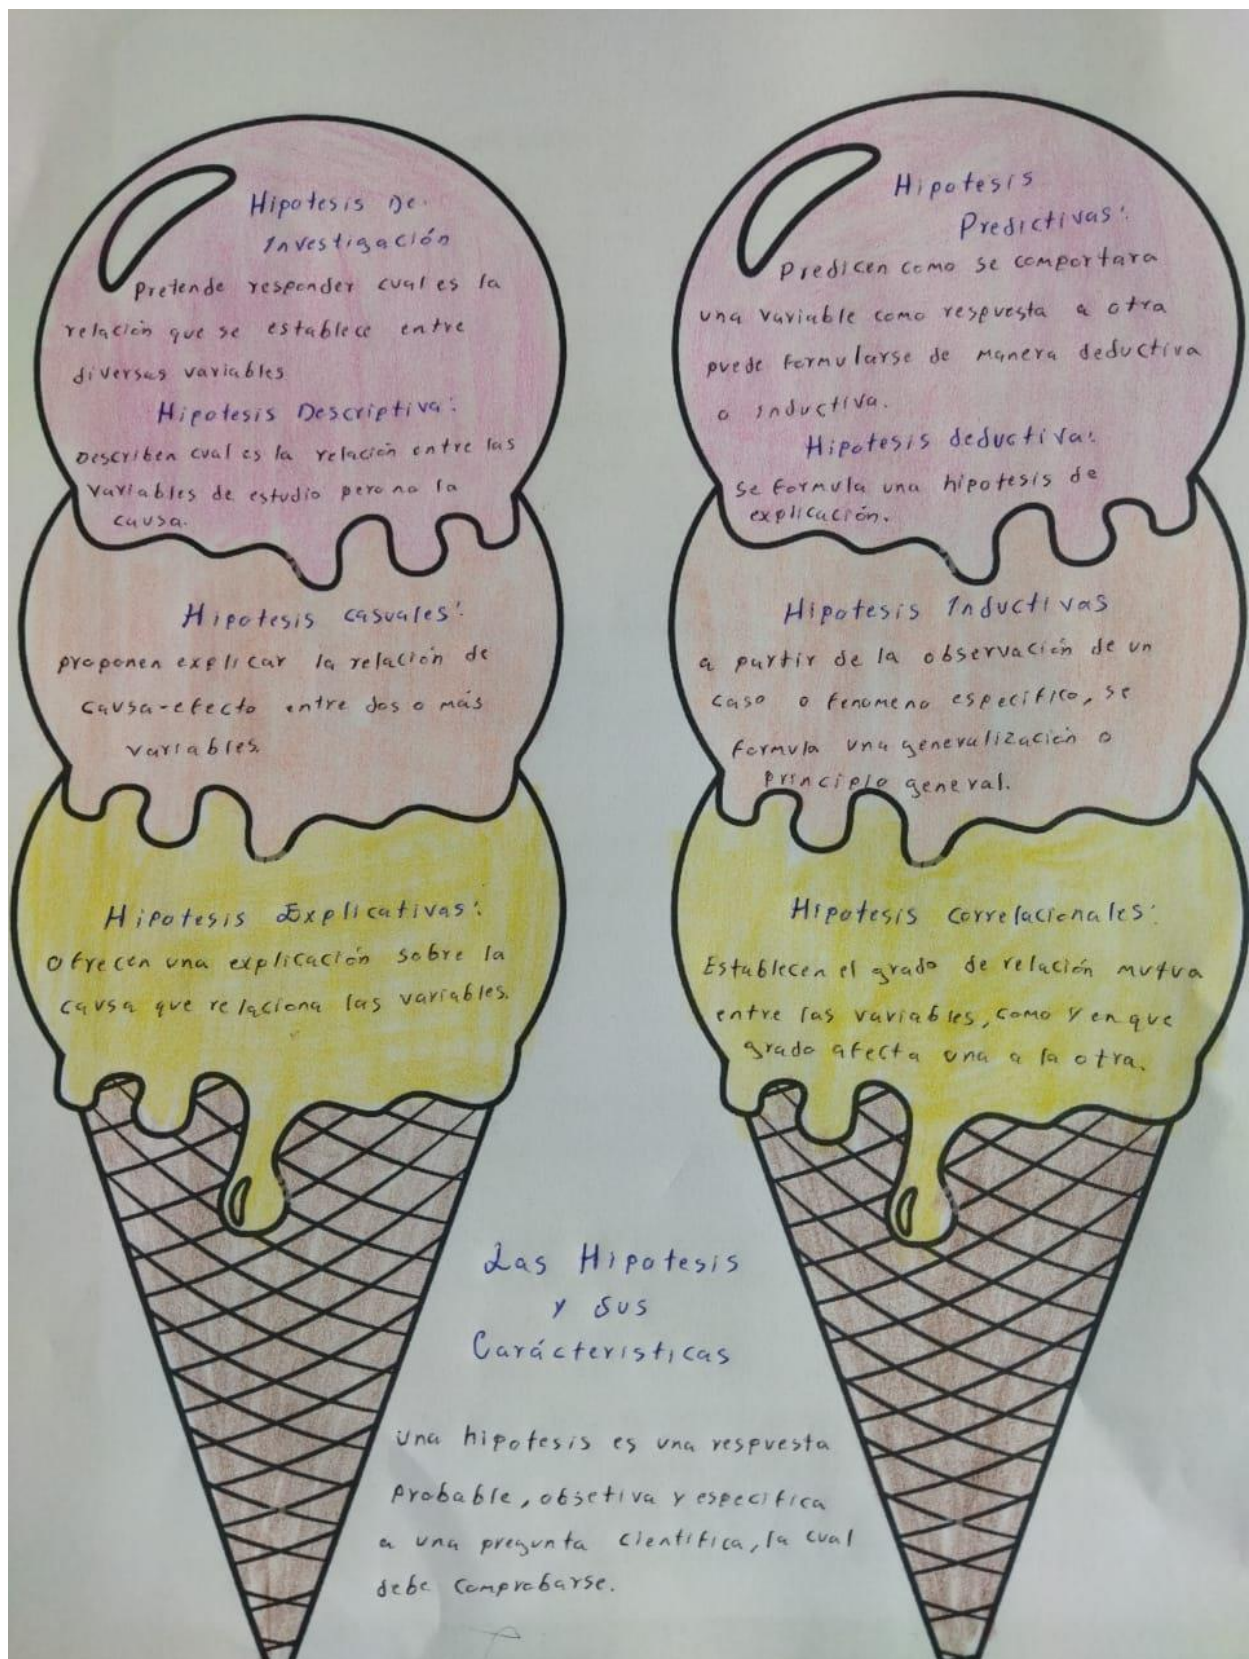 Hipotesis De
Investigación
Pretende responder cual es la
relación que se establece entre
diversas variables
Hipotesis Descriptiva:
Describen cual es la relación entre las
variables de estudio pero no la
causa.
Hipotesis casuales:
proponen explicar la relación de
causa-efecto entre dos o más
variables.
Hipotesis Explicativas:
Ofrecen una explicación sobre la
causa que relaciona las variables.
Hipotesis
Predictivas:
Predicen como se comportara
una variable como respuesta a otra
puede formularse de manera deductiva
o inductiva.
Hipotesis deductiva:
Se formula una hipotesis de
explicación.
Hipotesis Inductivas
a partir de la observación de un
caso o fenomeno especifico, se
formula una generalización o
principio general.
Hipotesis correlacionales:
Establecen el grado de relación mutua
entre las variables, como y en que
grado afecta una a la otra.
Las Hipotesis
y Sus
Carácteristicas
una hipotesis es una respuesta
probable, objetiva y especifica
a una pregunta cientifica, la cual
debe comprobarse.